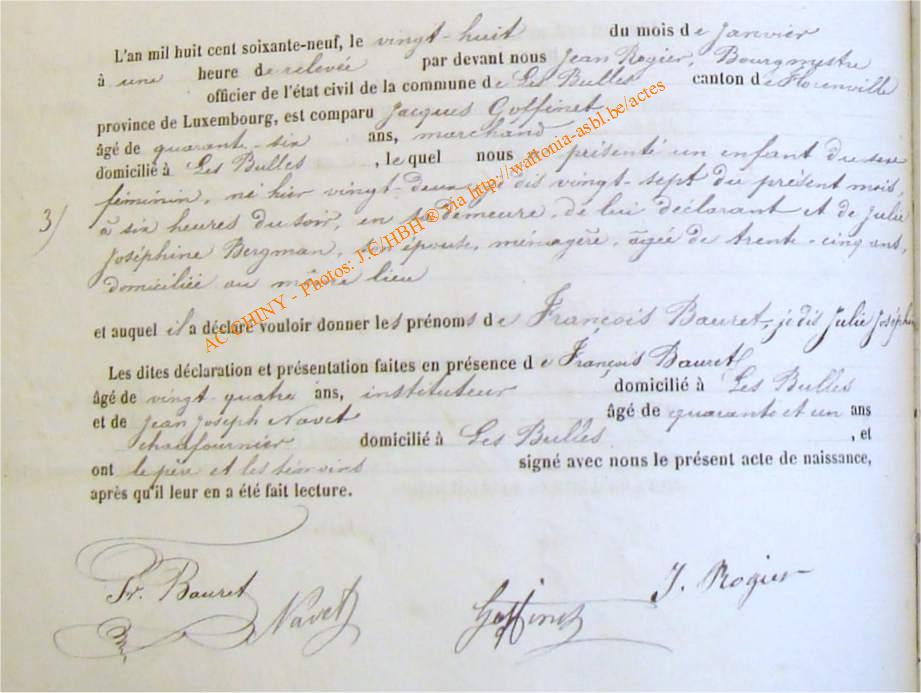 L'an mil huit cent soixante-neuf, le vingt-huit du mois de Janvier
à une heure de relevée par devant nous Jean Rogier, Bourgmestre
officier de l'état civil de la commune de Les Bulles canton de Florenville
province de Luxembourg, est comparu Jacques Goffinet
âgé de quarante-six ans, marchand
domicilié à Les Bulles, lequel nous a présenté un enfant du sexe
féminin, né hier vingt-deux je dis vingt-sept du présent mois,
3/ à six heures du soir, en sa demeure, de lui déclarant et de Julie
Joséphine Bergman, son épouse, ménagère, âgée de trente-cinq ans,
domiciliée au même lieu
et auquel il a déclaré vouloir donner les prénoms de François Bauret, je dis Julie Joséphine
Les dites déclaration et présentation faites en présence de François Bauret
âgé de vingt quatre ans, instituteur domicilié à Les Bulles
et de Jean Joseph Navet âgé de quarante et un ans
chaufournier domicilié à Les Bulles, et
ont le père et les témoins signé avec nous le présent acte de naissance,
après qu'il leur en a été fait lecture.
Fr. Bauret Navet Goffinet J. Rogier
AC CHINY - Photos: J.C/HBH® via http://wallonia-asbl.be/actes